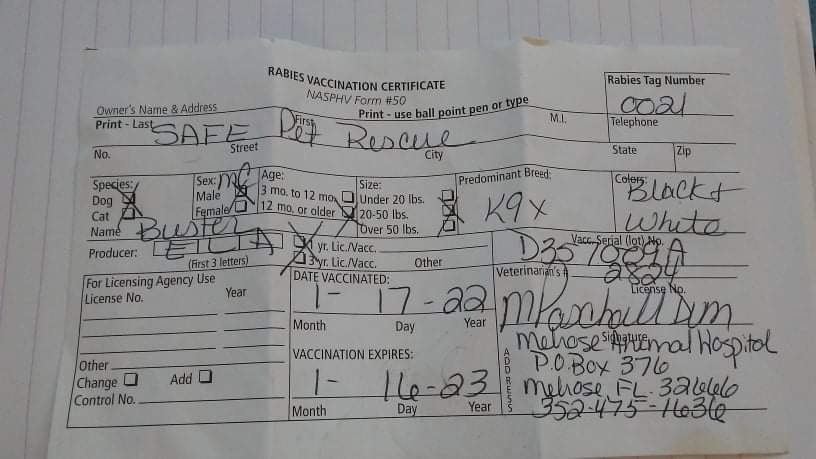 RABIES VACCINATION CERTIFICATE
NASPHV Form #50
Rabies Tag Number
0021
Owner's Name & Address
Print - use ball point pen or type
Print - Last First M.I. Telephone
SAFE Pet Rescue
No. Street City State Zip
Species: Sex: MC Age: Size: Predominant Breed: Colors:
Dog Male 3 mo. to 12 mo. Under 20 lbs. K9X Black +
Cat Female 12 mo. or older 20-50 lbs. White
Name Buster Over 50 lbs.
Producer: ELA 1 yr. Lic./Vacc. Vacc. Serial (lot) No.
(First 3 letters) 3 yr. Lic./Vacc. Other D357009A
For Licensing Agency Use DATE VACCINATED: Veterinarian's # 2824
License No. Year 1- 17-22 License No.
Month Day Year MPaschall Dvm
Signature
VACCINATION EXPIRES: Melrose Animal Hospital
Other ADDRESS P.O. Box 376
Change Add 1- 16-23 Melrose FL. 32666
Control No. 352-475-1636
Month Day Year